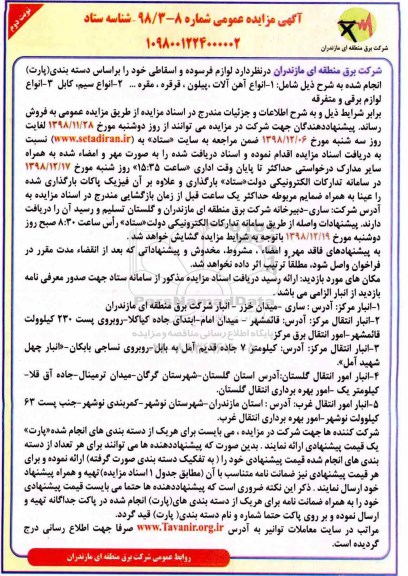 نوبت دوم
آگهی مزایده عمومی شماره ۸-۹۸/۳- شناسه ستاد
۱۰۹۸۰۰۱۲۲۴۰۰۰۰۰۲
شرکت برق منطقه ای مازندران
شرکت برق منطقه ای مازندران درنظردارد لوازم فرسوده و اسقاطی خود را براساس دسته بندی(پارت)
انجام شده به شرح ذیل شامل: ۱-انواع آهن آلات ،پیلون ، قرقره ، مقره ... ۲-انواع سیم، کابل ۳-انواع
لوازم برقی و متفرقه
برابر شرایط ذیل و به شرح اطلاعات و جزئیات مندرج در اسناد مزایده از طریق مزایده عمومی به فروش
رساند. پیشنهاددهندگان جهت شرکت در مزایده می توانند از روز دوشنبه مورخ ۱۳۹۸/۱۱/۲۸ لغایت
روز سه شنبه مورخ ۱۳۹۸/۱۲/۰۶ ضمن مراجعه به سایت «ستاد» به (www.setadiran.ir) نسبت
به دریافت اسناد مزایده اقدام نموده و اسناد دریافت شده را به صورت مهر و امضاء شده به همراه
سایر مدارک درخواستی حداکثر تا پایان وقت اداری «ساعت ۱۵:۳۵» روز شنبه مورخ ۱۳۹۸/۱۲/۱۷
در سامانه تدارکات الکترونیکی دولت«ستاد» بارگذاری و علاوه بر آن فیزیک پاکات بارگذاری شده
را عینا به همراه ضمایم مربوطه حداکثر یک ساعت قبل از زمان بازگشایی مندرج در اسناد مزایده به
آدرس شرکت: ساری-دبیرخانه شرکت برق منطقه ای مازندران و گلستان تسلیم و رسید آن را دریافت
دارند. پیشنهادات واصله از طریق سامانه تدارکات الکترونیکی دولت«ستاد» رأس ساعت ۸:۳۰ صبح روز
دوشنبه مورخ ۱۳۹۸/۱۲/۱۹ باتوجه به شرایط مزایده گشایش خواهد شد.
به پیشنهادهای فاقد مهر و امضاء ، مشروط، مخدوش و پیشنهاداتی که بعد از انقضاء مدت مقرر در
فراخوان واصل شود، مطلقا ترتیب اثر داده نخواهد شد.
مکان های مورد بازدید: ارائه رسید دریافت اسناد مزایده مذکور از سامانه ستاد جهت صدور معرفی نامه
بازدید از انبار الزامی می باشد .
۱-انبار مرکز: آدرس : ساری -میدان خزر - انبار شرکت برق منطقه ای مازندران
۲-انبار انتقال مرکز: آدرس: قائمشهر - میدان امام-ابتدای جاده کیاکلا-روبروی پست ۲۳۰ کیلوولت
قائمشهر-امور انتقال برق مرکز
۳-انبار انتقال مرکز: آدرس: کیلومتر ۷ جاده قدیم آمل به بابل-روبروی نساجی بابکان-«انبار چهل
شهید آمل».
۴-انبار امور انتقال گلستان:آدرس استان گلستان-شهرستان گرگان-میدان ترمینال-جاده آق قلا-
کیلومتر یک -امور بهره برداری انتقال گلستان.
۵-انبار امور انتقال غرب: آدرس : استان مازندران-شهرستان نوشهر-کمربندی نوشهر-جنب پست ۶۳
کیلوولت نوشهر-امور بهره برداری انتقال غرب.
شرکت کننده ها جهت شرکت در مزایده ، می بایست برای هریک از دسته بندی های انجام شده«پارت»
یک قیمت پیشنهادی ارائه نمایند . بدین صورت که پیشنهاددهنده ها می توانند برای هر تعداد از دسته
بندی های انجام شده قیمت پیشنهادی خود را ( به تفکیک دسته بندی صورت گرفته) ارائه نموده و برای
هر قیمت پیشنهادی نیز ضمانت نامه متناسب با آن (مطابق جدول ۱ اسناد مزایده) تهیه و همراه پیشنهاد
خود ارسال نمایند . ذکر این نکته ضروری است که پیشنهاددهنده ها حتما می بایست قیمت پیشنهادی
خود را به همراه ضمانت نامه برای هریک از دسته بندی های(پارت) انجام شده در پاکت جداگانه تهیه و
ارسال نموده و بر روی پاکت حتما شماره و نام دسته بندی( پارت) قید گردد.
مراتب در سایت معاملات توانیر به آدرس www.Tavanir.org.ir صرفا جهت اطلاع رسانی درج
گردیده است.
روابط عمومی شرکت برق منطقه ای مازندران